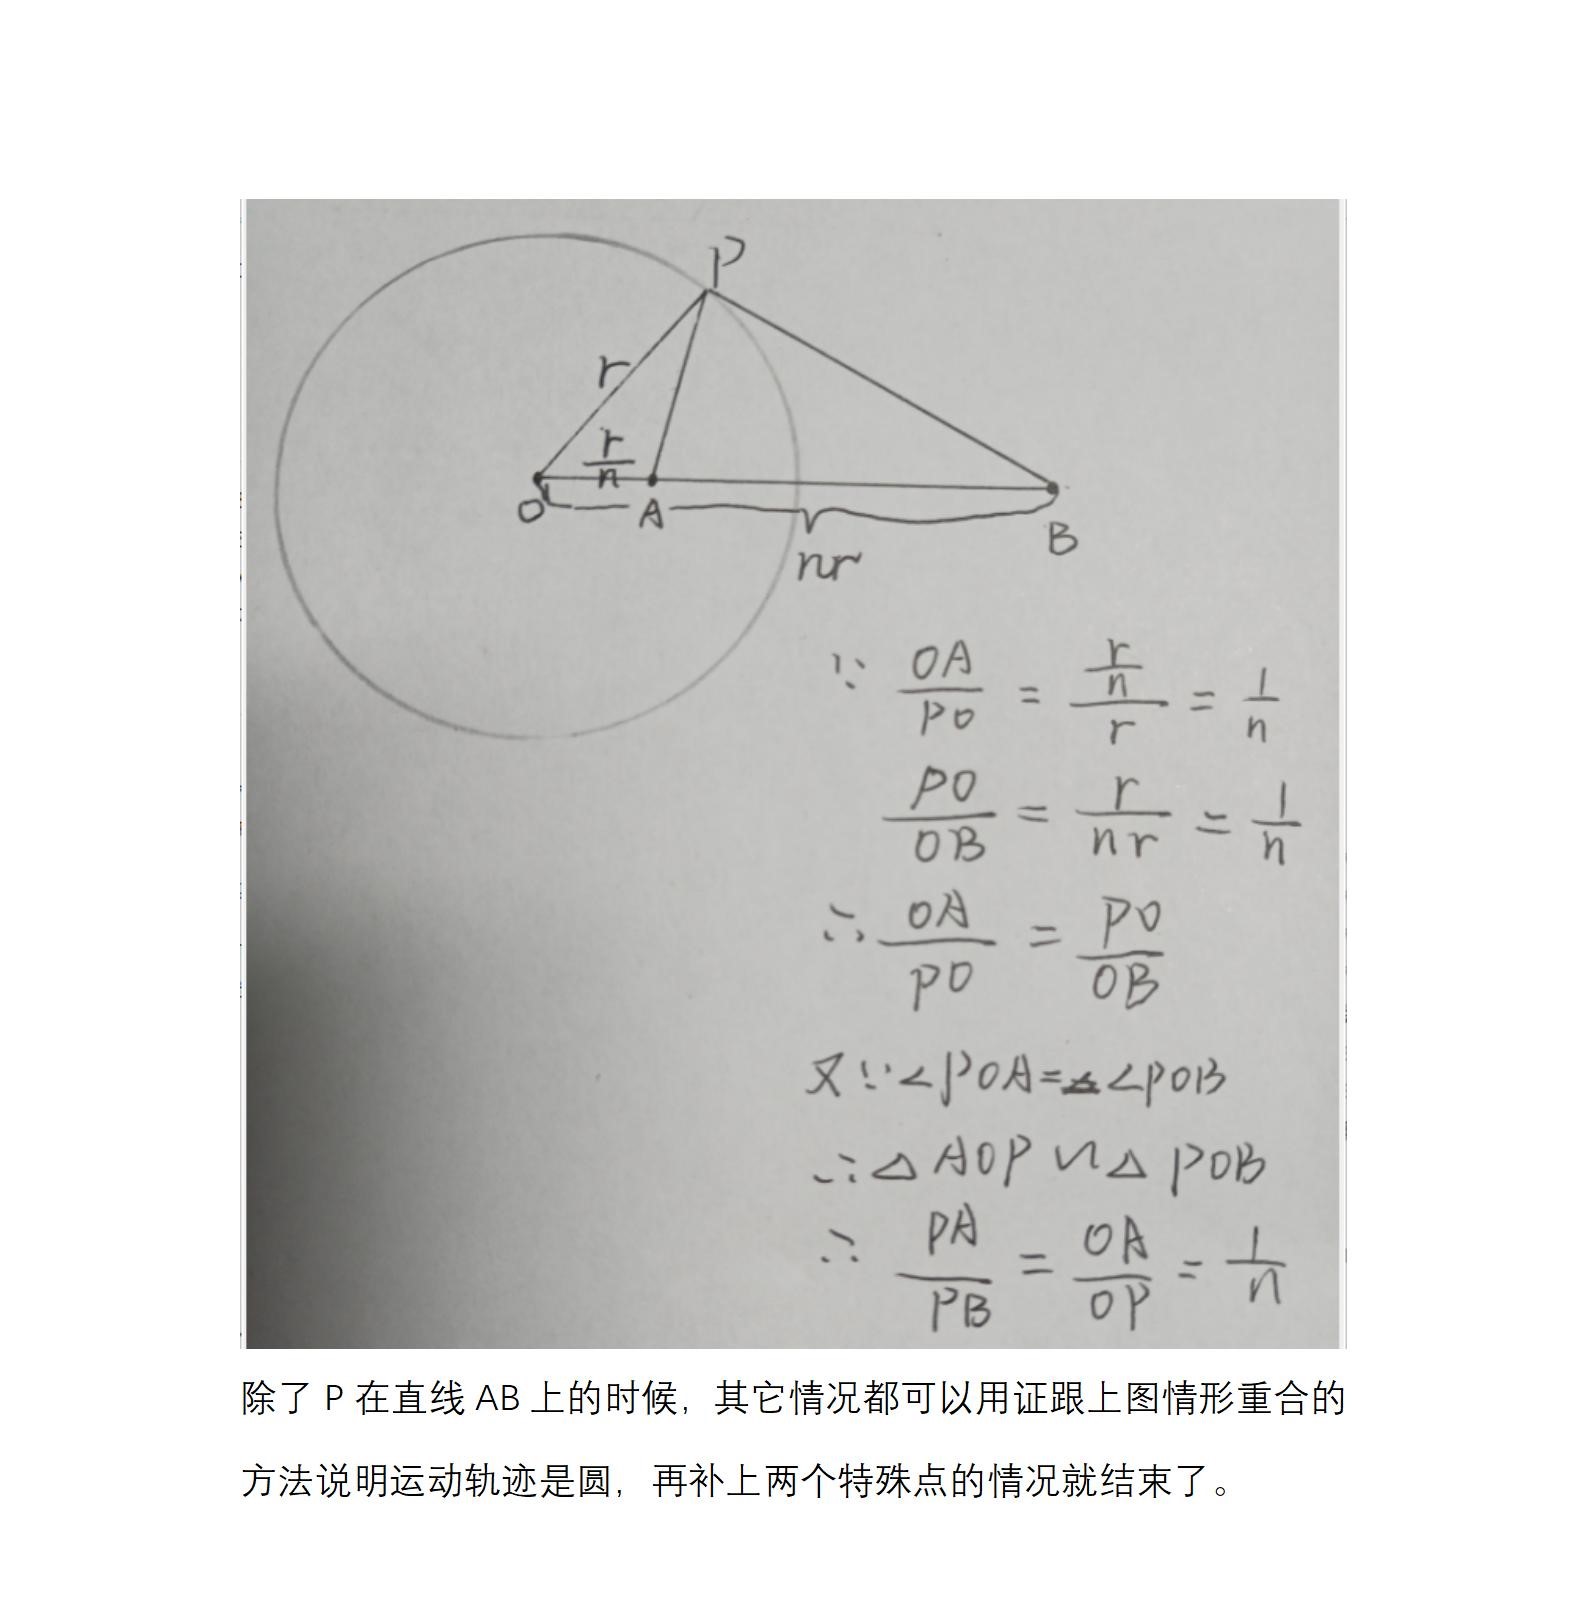 P
r
r/n
O A B
nr
∵ OA/PO = (r/n)/r = 1/n
PO/OB = r/nr = 1/n
∴ OA/PO = PO/OB
又∵∠POA=∠POB
∴△AOP∽△POB
∴ PA/PB = OA/OP = 1/n
除了 P 在直线 AB 上的时候，其它情况都可以用证跟上图情形重合的
方法说明运动轨迹是圆，再补上两个特殊点的情况就结束了。